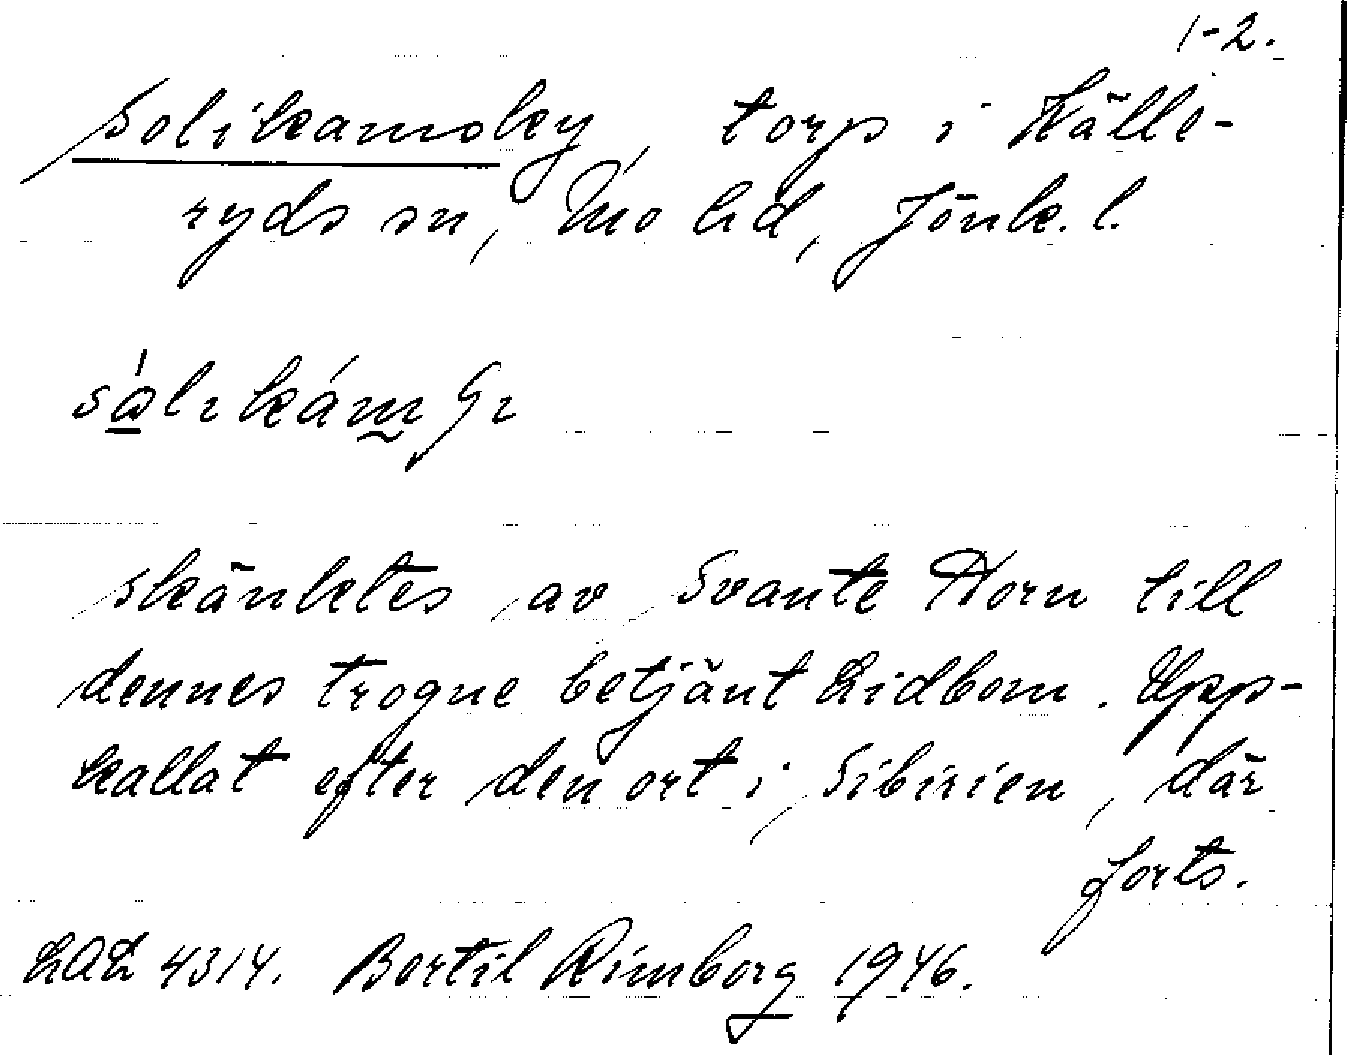 1-2.
Solikamsky, torp i Källe-
ryds sn, Mo hd, Jönk. l.
skänktes av Svante Horn till
dennes trogne betjänt Lidbom. Upp-
kallat efter den ort i Sibirien, där
forts.
LAL 4314. Bertil Rimborg 1946.